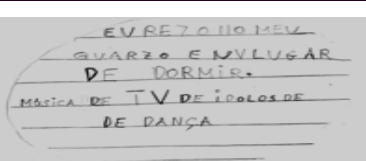 EU REZO NO MEU
QUARZO E NVLUGAR
DE DORMIR.
MÚSICA DE TV DE iDOLOS DE
DE DANÇA